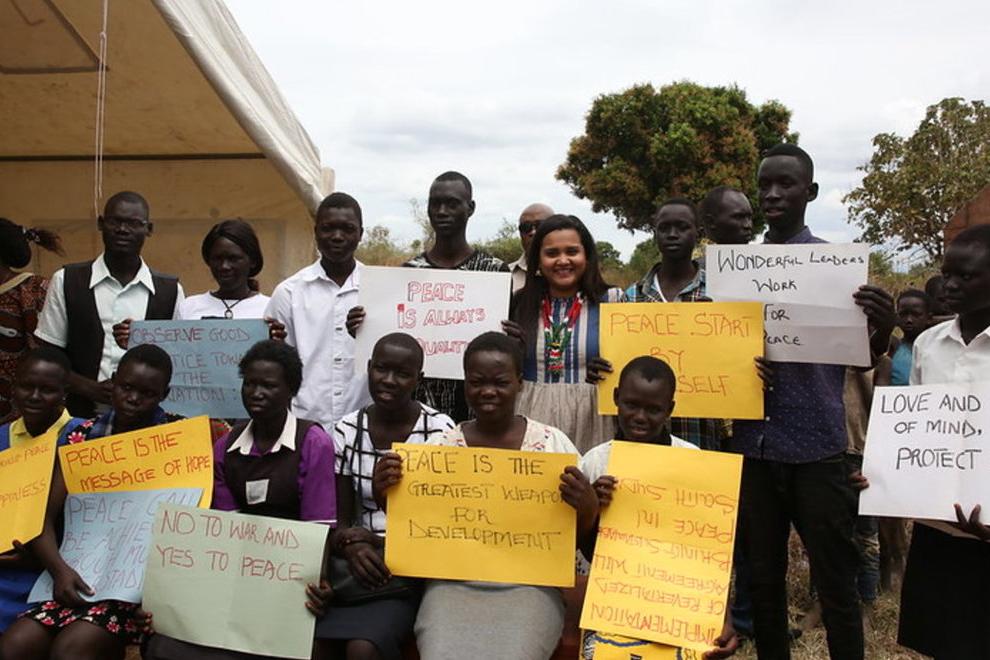 OBSERVE GOOD
THE
PEACE
IS ALWAYS
WONDERFUL LEADERS
WORK
FOR
PEACE START
BY
LOVE AND
OF MIND,
PROTECT
PEACE
PEACE IS THE
MESSAGE OF HOPE
PEACE CAN
NO TO WAR AND
YES TO PEACE
PEACE IS THE
GREATEST WEAPON
FOR
DEVELOPMENT
IMPLEMENTATION
OF REVERTALIZED
AGREEMENT WILL
BRING SUSTAINABLE
PEACE IN
SOUTH SUDAN